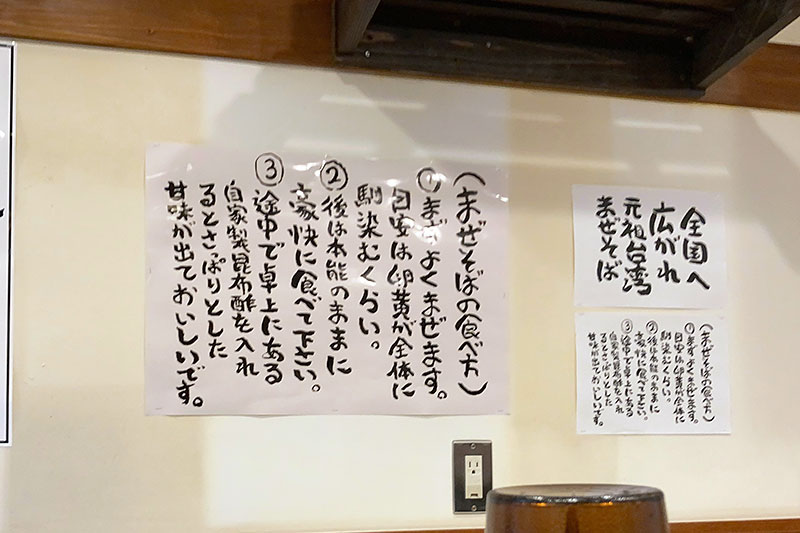 (まぜそばの食べ方)
①まずよくまぜます。
目安は卵黄が全体に
馴染むくらい。
②後は本能のままに
豪快に食べて下さい。
③途中で卓上にある
自家製昆布酢を入れ
るとさっぱりとした
甘味が出ておいしいです。
全国へ
広がれ
元祖台湾
まぜそば
(まぜそばの食べ方)
①まずよくまぜます。
目安は卵黄が全体に
馴染むくらい。
②後は本能のままに
豪快に食べて下さい。
③途中で卓上にある
自家製昆布酢を入れ
るとさっぱりとした
甘味が出ておいしいです。